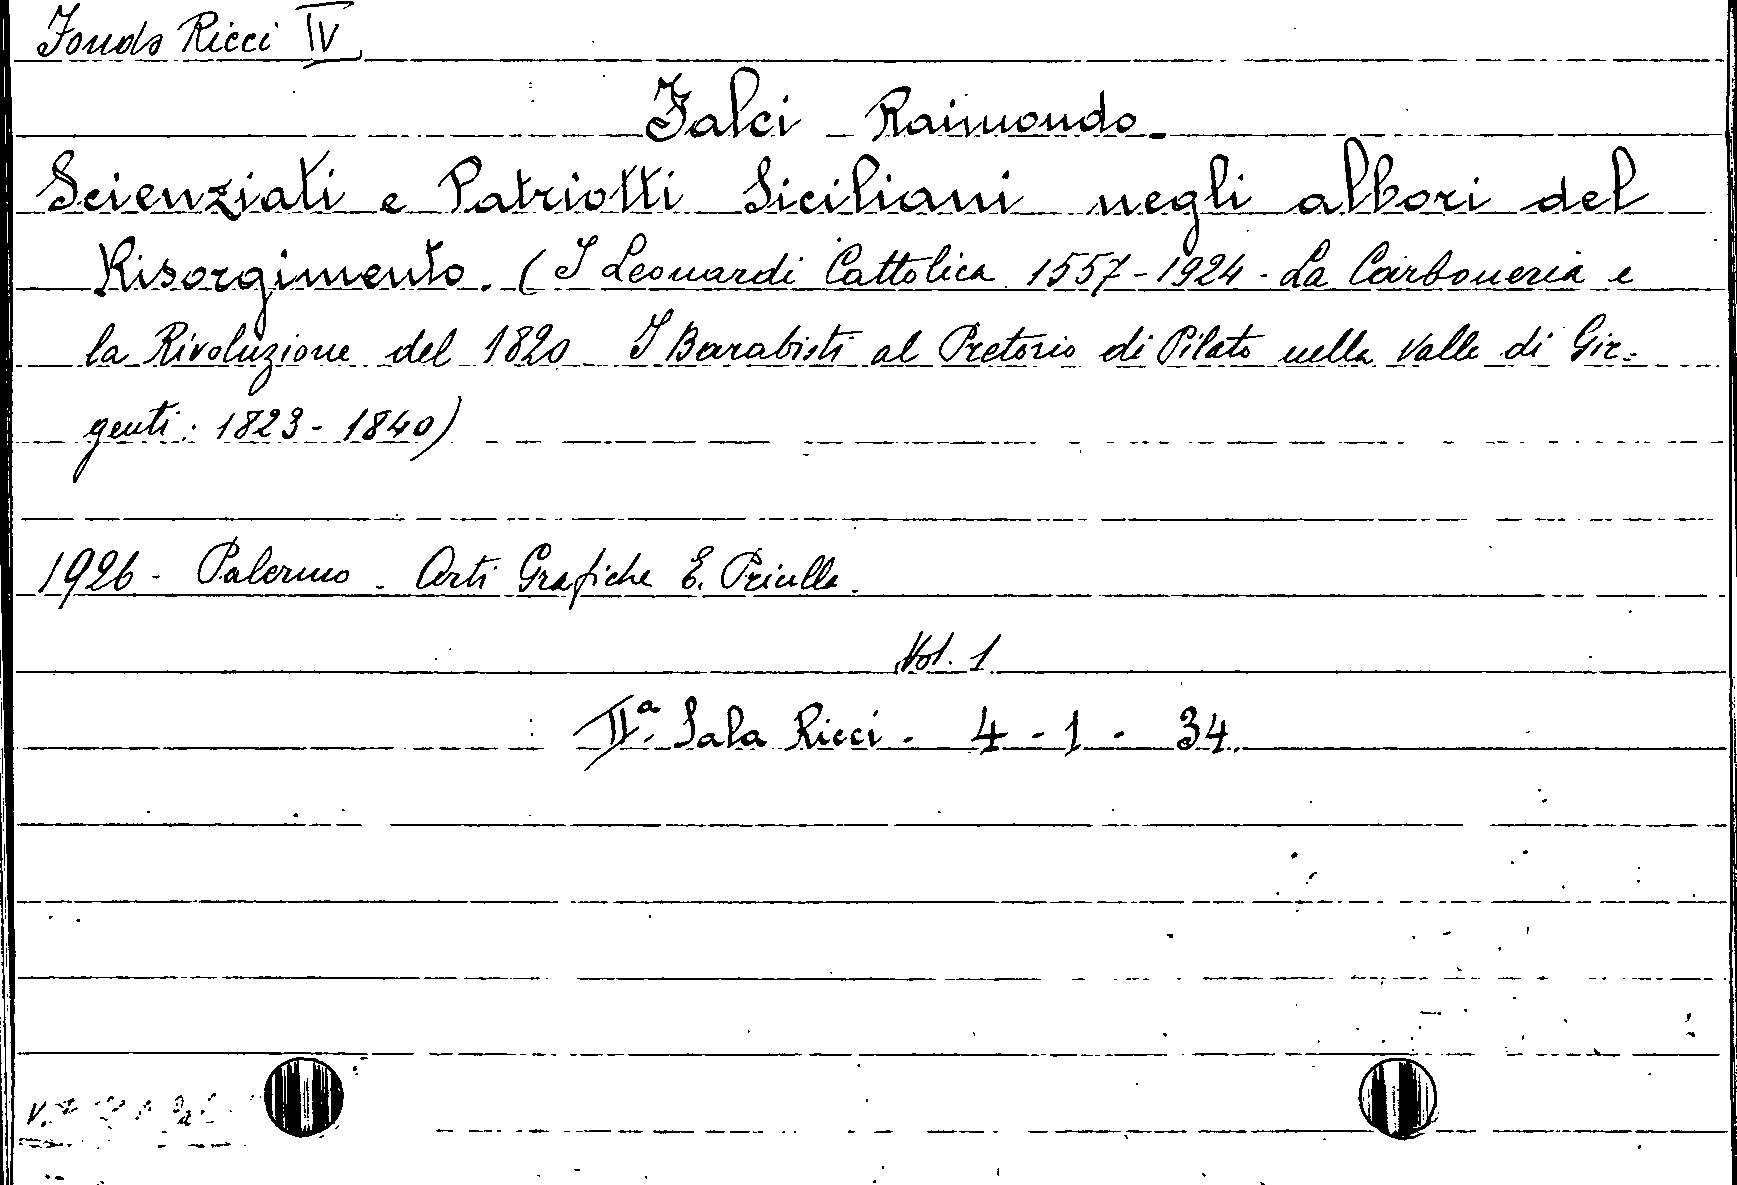 Fondo Ricci IV
Falci Raimondo.
Scienziati e Patriotti Siciliani negli albori del
Risorgimento. (I Leonardi Cattolica 1557-1924 - La Carboneria e
la Rivoluzione del 1820 I Barabisti al Pretorio di Pilato nella Valle di Gir=
genti: 1823 - 1840)
1926 - Palermo - Arti Grafiche E. Priulla.
Vol. 1
IIª. Sala Ricci - 4 - 1 - 34.